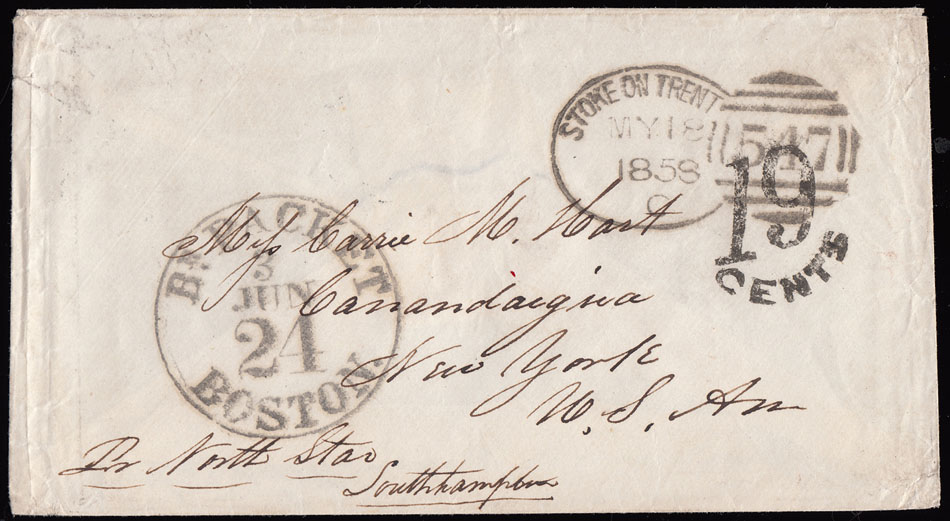 STOKE ON TRENT
MY 18
1858
C
547
19
CENTS
BR. PACKET
3
JUN
24
BOSTON.
Miss Carrie M. Hart
Canandaigua
New York
U. S. Am
Pr North Star
Southhampton